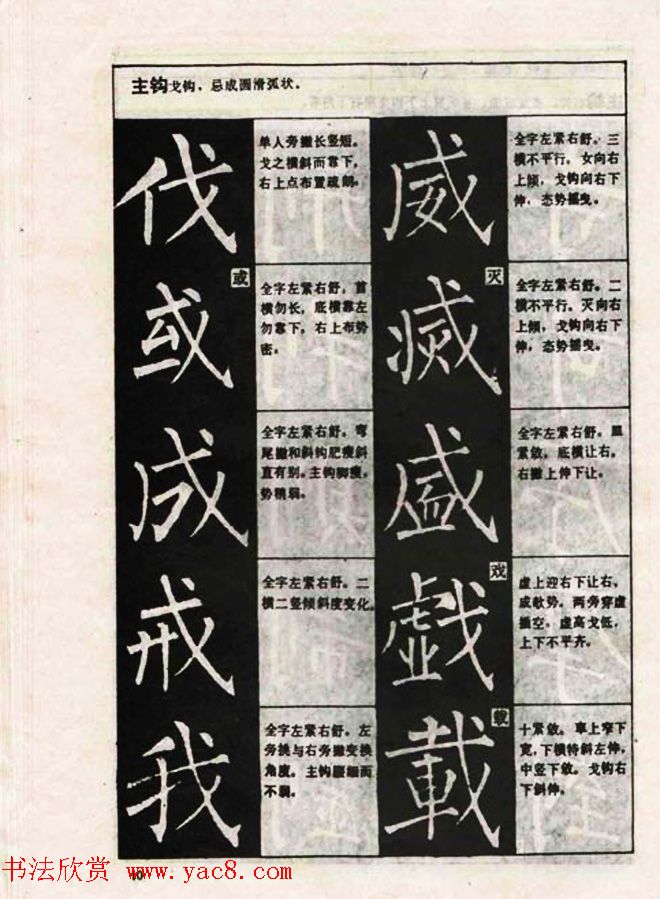 主钩戈钩，忌成圆滑弧状。
伐
单人旁撇长竖短。
戈之横斜而靠下，
右上点布置疏朗。
或
或
全字左紧右舒，首
横勿长，底横靠左
勿靠下，右上布势
密。
成
全字左紧右舒。弯
尾撇和斜钩肥瘦斜
直有别。主钩脚瘦，
势稍弱。
戒
全字左紧右舒。二
横二竖倾斜度变化。
我
全字左紧右舒。左
旁挑与右旁撇变换
角度。主钩腰细而
不弱。
威
全字左紧右舒。三
横不平行，女向右
上倾，戈钩向右下
伸，态势摇曳。
灭
滅
全字左紧右舒。二
横不平行。灭向右
上倾，戈钩向右下
伸，态势摇曳。
盛
全字左紧右舒。里
紧敛。底横让右。
右撇上伸下让。
戏
戯
虚上迎右下让右，
成欹势。两旁穿虚
插空，虚高戈低，
上下不平齐。
载
載
十紧敛。車上窄下
宽，下横特斜左伸，
中竖下敛。戈钩右
下斜伸。
书法欣赏 www.yac8.com